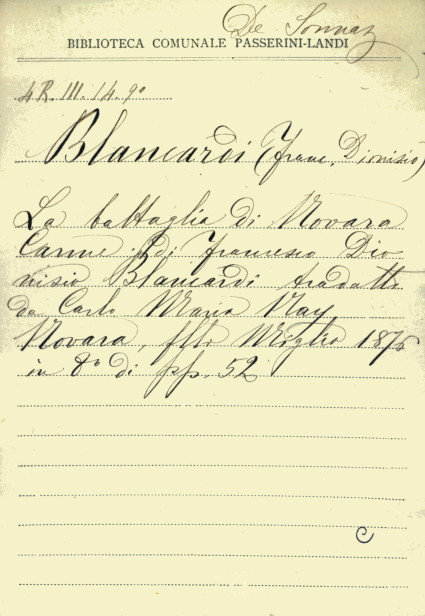 De Sonnaz
BIBLIOTECA COMUNALE PASSERINI-LANDI
4R.III.14.9º
Blancardi (Franc. Dionisio)
La battaglia di Novara
Carme di Francesco Dio
nisio Blancardi tradotto
da Carlo Maria Nay
Novara, flli Miglio 1875
in 8º di pp. 52
C